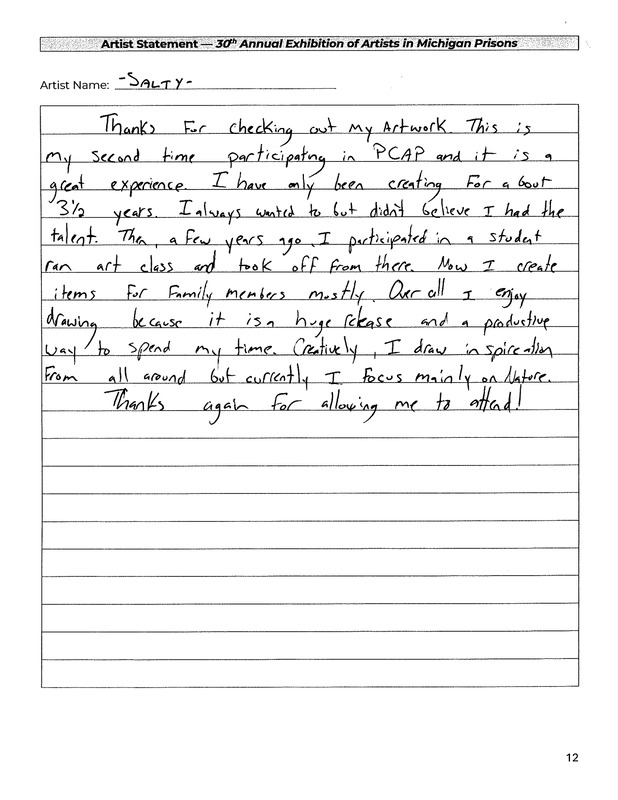 Artist Statement — 30th Annual Exhibition of Artists in Michigan Prisons
Artist Name: -SALTY-
Thanks For checking out my Artwork. This is
my second time participating in PCAP and it is a
great experience. I have only been creating For about
3½ years. I always wanted to but didn't believe I had the
talent. Then, a few years ago, I participated in a student
ran art class and took off from there. Now I create
items For Family members mostly. Over all I enjoy
drawing because it is a huge release and a productive
way to spend my time. Creatively, I draw inspireation
From all around but currently I focus mainly on Nature.
Thanks again for allowing me to attend!
12